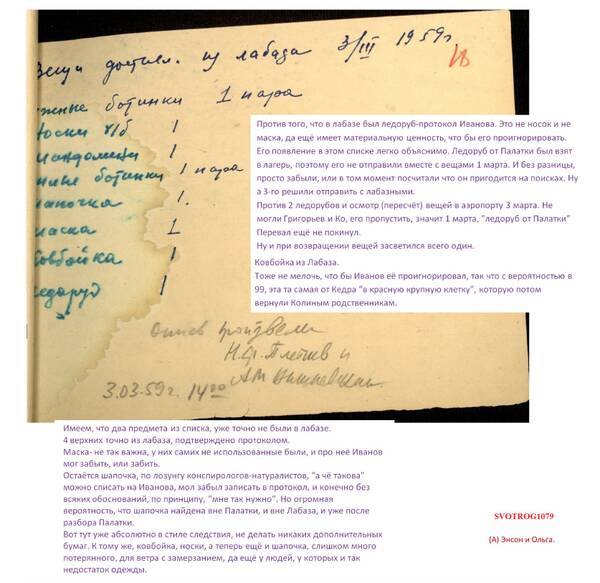 Вещи достав. из лабаза 3/III 1959г
18
ыжные ботинки 1 пара
Носки х/б 1
мандолина 1
ботинки 1 пара
шапочка 1
маска 1
Ковбойка 1
ледоруб 1
опись произвели
и
3.03.59г. 14 00
Против того, что в лабазе был ледоруб-протокол Иванова. Это не носок и не
маска, да ещё имеет материальную ценность, что бы его проигнорировать.
Его появление в этом списке легко объяснимо. Ледоруб от Палатки был взят
в лагерь, поэтому его не отправили вместе с вещами 1 марта. И без разницы,
просто забыли, или в том момент посчитали что он пригодится на поисках. Ну
а 3-го решили отправить с лабазными.
Против 2 ледорубов и осмотр (пересчёт) вещей в аэропорту 3 марта. Не
могли Григорьев и Ко, его пропустить, значит 1 марта, "ледоруб от Палатки"
Перевал ещё не покинул.
Ну и при возвращении вещей засветился всего один.
Ковбойка из Лабаза.
Тоже не мелочь, что бы Иванов её проигнорировал, так что с вероятностью в
99, эта та самая от Кедра "в красную крупную клетку", которую потом
вернули Колиным родственникам.
Имеем, что два предмета из списка, уже точно не были в лабазе.
4 верхних точно из лабаза, подтверждено протоколом.
Маска- не так важна, у них самих не использованные были, и про неё Иванов
мог забыть, или забить.
Остаётся шапочка, по лозунгу конспирологов-натуралистов, "а чё такова"
можно списать на Иванова, мол забыл записать в протокол, и конечно без
всяких обоснований, по принципу, "мне так нужно". Но огромная
вероятность, что шапочка найдена вне Палатки, и вне Лабаза, и уже после
разбора Палатки.
Вот тут уже абсолютно в стиле следствия, не делать никаких дополнительных
бумаг. К тому же, ковбойка, носки, а теперь ещё и шапочка, слишком много
потерянного, для ветра с замерзанием, да ещё у людей, у которых и так
недостаток одежды.
SVOTROG1079
(А) Энсон и Ольга.